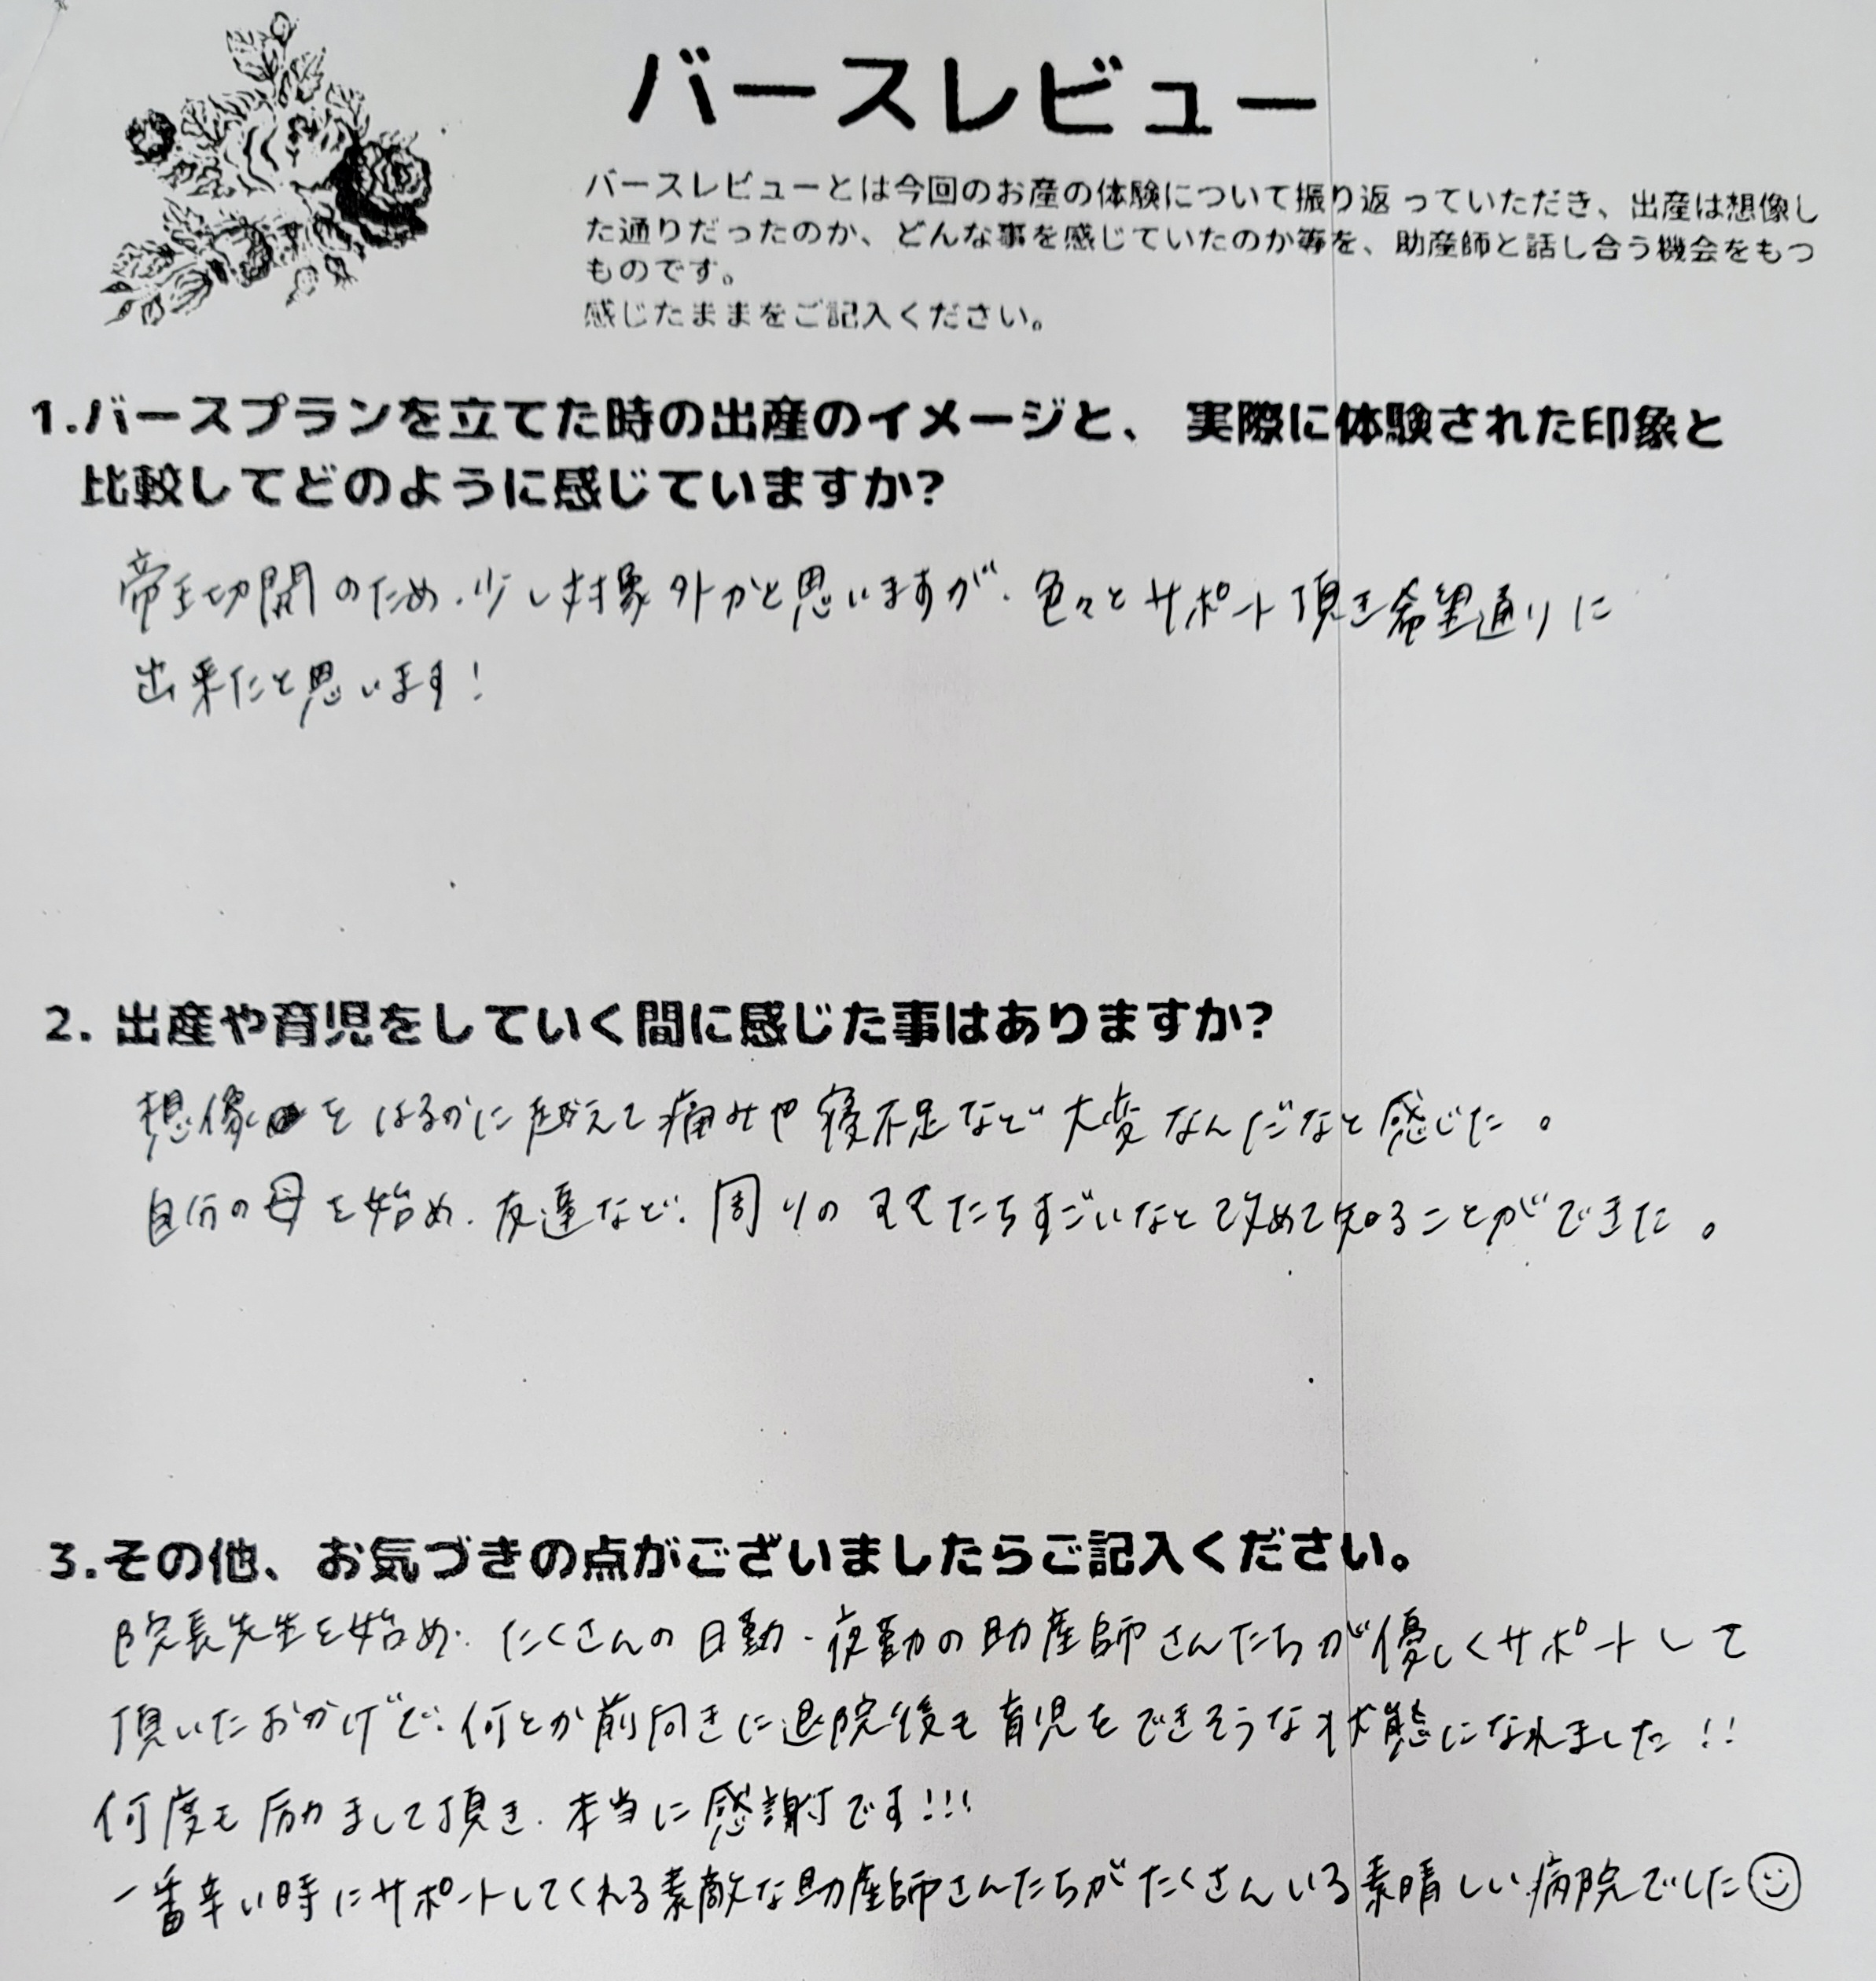 バースレビュー
バースレビューとは今回のお産の体験について振り返 っていただき、出産は想像し
た通りだったのか、どんな事を感じていたのか等を、助産師と話し合う機会をもつ
ものです。
感じたままをご記入ください。
1.バースプランを立てた時の出産のイメージと、 実際に体験された印象と
比較してどのように感じていますか?
帝王切開のため、少し対象外かと思いますが、色々とサポート頂き希望通りに
出来たと思います!
2. 出産や育児をしていく間に感じた事はありますか?
想像をはるかに越えて痛みや寝不足など大変なんだなと感じた。
自分の母を始め、友達など、周りのママたちすごいなと改めて知ることができた。
3.その他、お気づきの点がございましたらご記入ください。
院長先生を始め、たくさんの日勤・夜勤の助産師さんたちが優しくサポートして
頂いたおかげで、何とか前向きに退院後も育児をできそうな状態になれました!!
何度も励まして頂き、本当に感謝です!!!
一番辛い時にサポートしてくれる素敵な助産師さんたちがたくさんいる素晴しい病院でした☺